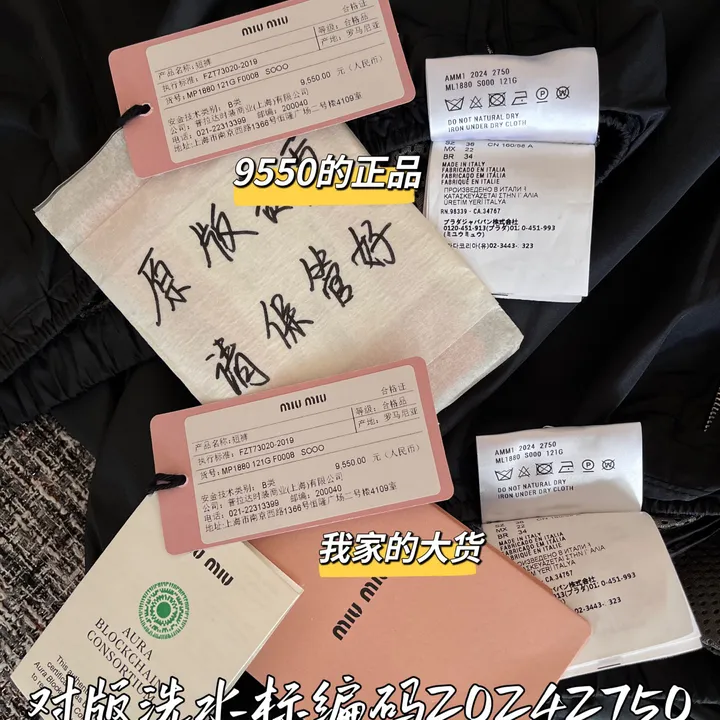 MIU MIU
合格证
产品名称: 短裤
等级: 合格品
执行标准: FZT73020-2019
产地: 罗马尼亚
货号: MP1880 121G F0008 SOOO
9,550.00 元（人民币）
安全技术类别: B类
公司: 普拉达时装商业(上海)有限公司
电话: 021-22313399 邮编: 200040
地址: 上海市南京西路1366号恒隆广场二号楼4109室
AMM1 2024 2750
ML1880 S000 121G
DO NOT NATURAL DRY
IRON UNDER DRY CLOTH
SZ 36 CN 160/58 A
MX 22
BR 34
MADE IN ITALY
FABRICADO EN ITALIA
FABRICADO EM ITÁLIA
FABRIQUÉ EN ITALIE
ПРОИЗВЕДЕНО В ИТАЛИИ
ΚΑΤΑΣΚΕΥΑΖΕΤΑΙ ΣΤΗΝ Γ ΑΛΙΑ
ÜRETIM YERI ITALYA
RN.98339 - CA.34767
プラダジャパン株式会社
0120-451-913(プラダ)01 0-451-993
(ミュウミュウ)
라다코리아(유)02-3443- 323
9550的正品
原版
请保管好
MIU MIU
合格证
产品名称: 短裤
等级: 合格品
执行标准: FZT73020-2019
产地: 罗马尼亚
货号: MP1880 121G F0008 SOOO
9,550.00 元（人民币）
安全技术类别: B类
公司: 普拉达时装商业(上海)有限公司
电话: 021-22313399 邮编: 200040
地址: 上海市南京西路1366号恒隆广场二号楼4109室
AMM1 2024 2750
ML1880 S000 121G
DO NOT NATURAL DRY
IRON UNDER DRY CLOTH
MX 22
BR 34
MADE IN ITALY
FABRICADO EN ITALIA
FABRICADO EM ITÁLIA
我家的大货
MIU MIU
MIU MIU
AURA
BLOCKCHAIN
CONSORTIUM
对版洗水标编码20242750